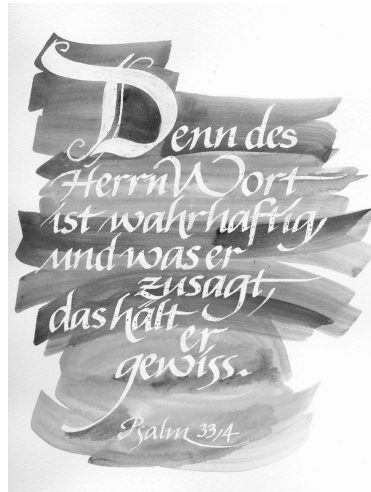 Denn des
Herrn Wort
ist wahrhaftig,
und was er
zusagt,
das hält er
gewiss.
Psalm 33,4